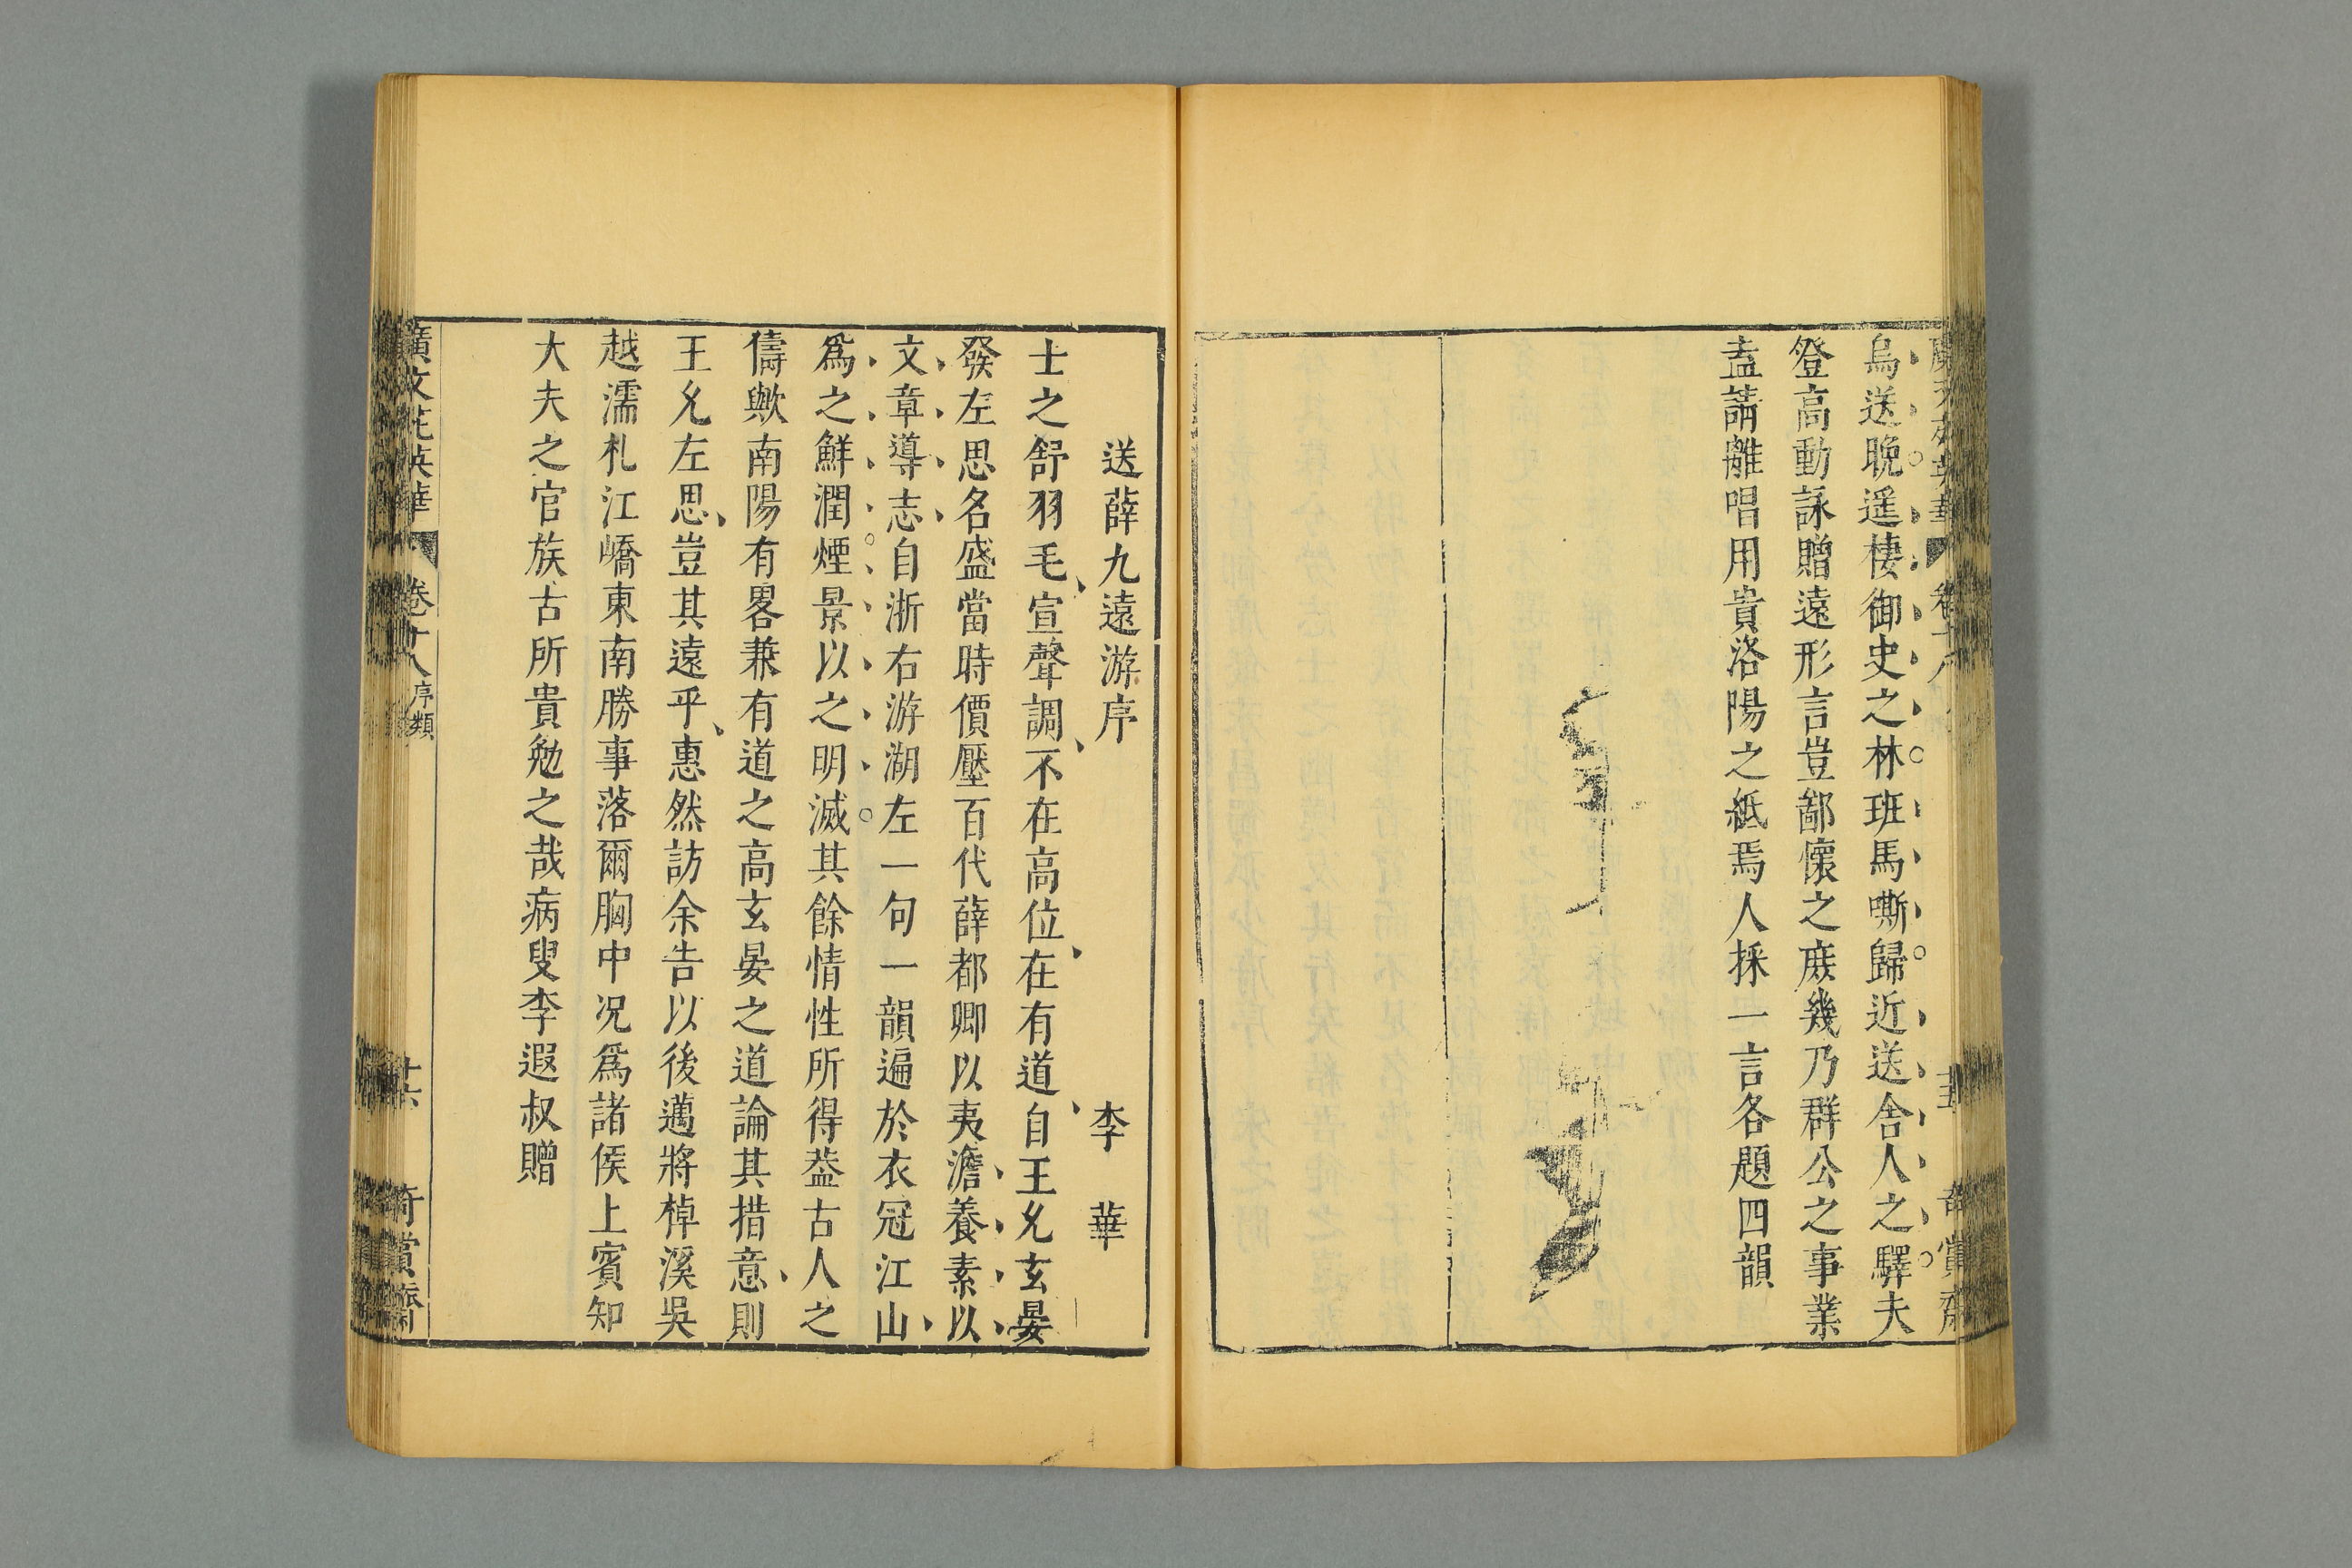 烏送晩遥棲御史之林班馬嘶歸近送舎人之驛夫
登高動詠贈遠形言豈鄙懷之庻幾乃群公之事業
盍請離唱用貴洛陽之紙焉人採一言各題四韻
送薛九遠游序 李華
士之舒羽毛宣聲調不在高位在有道自王允玄晏
發左思名盛當時價壓百代薛都卿以夷澹養素以
文章導志自浙右游湖左一句一韻遍於衣冠江山
爲之鮮潤煙景以之明滅其餘情性所得葢古人之
儔歟南陽有畧兼有道之高玄晏之道論其措意則
王允左思豈其遠乎惠然訪余告以後邁將棹溪吳
越濡札江嶠東南勝事落爾胸中况爲諸侯上賓知
大夫之官族古所貴勉之哉病叟李遐叔贈
廣文苑英華 卷十八 序類 十六 奇賞齋